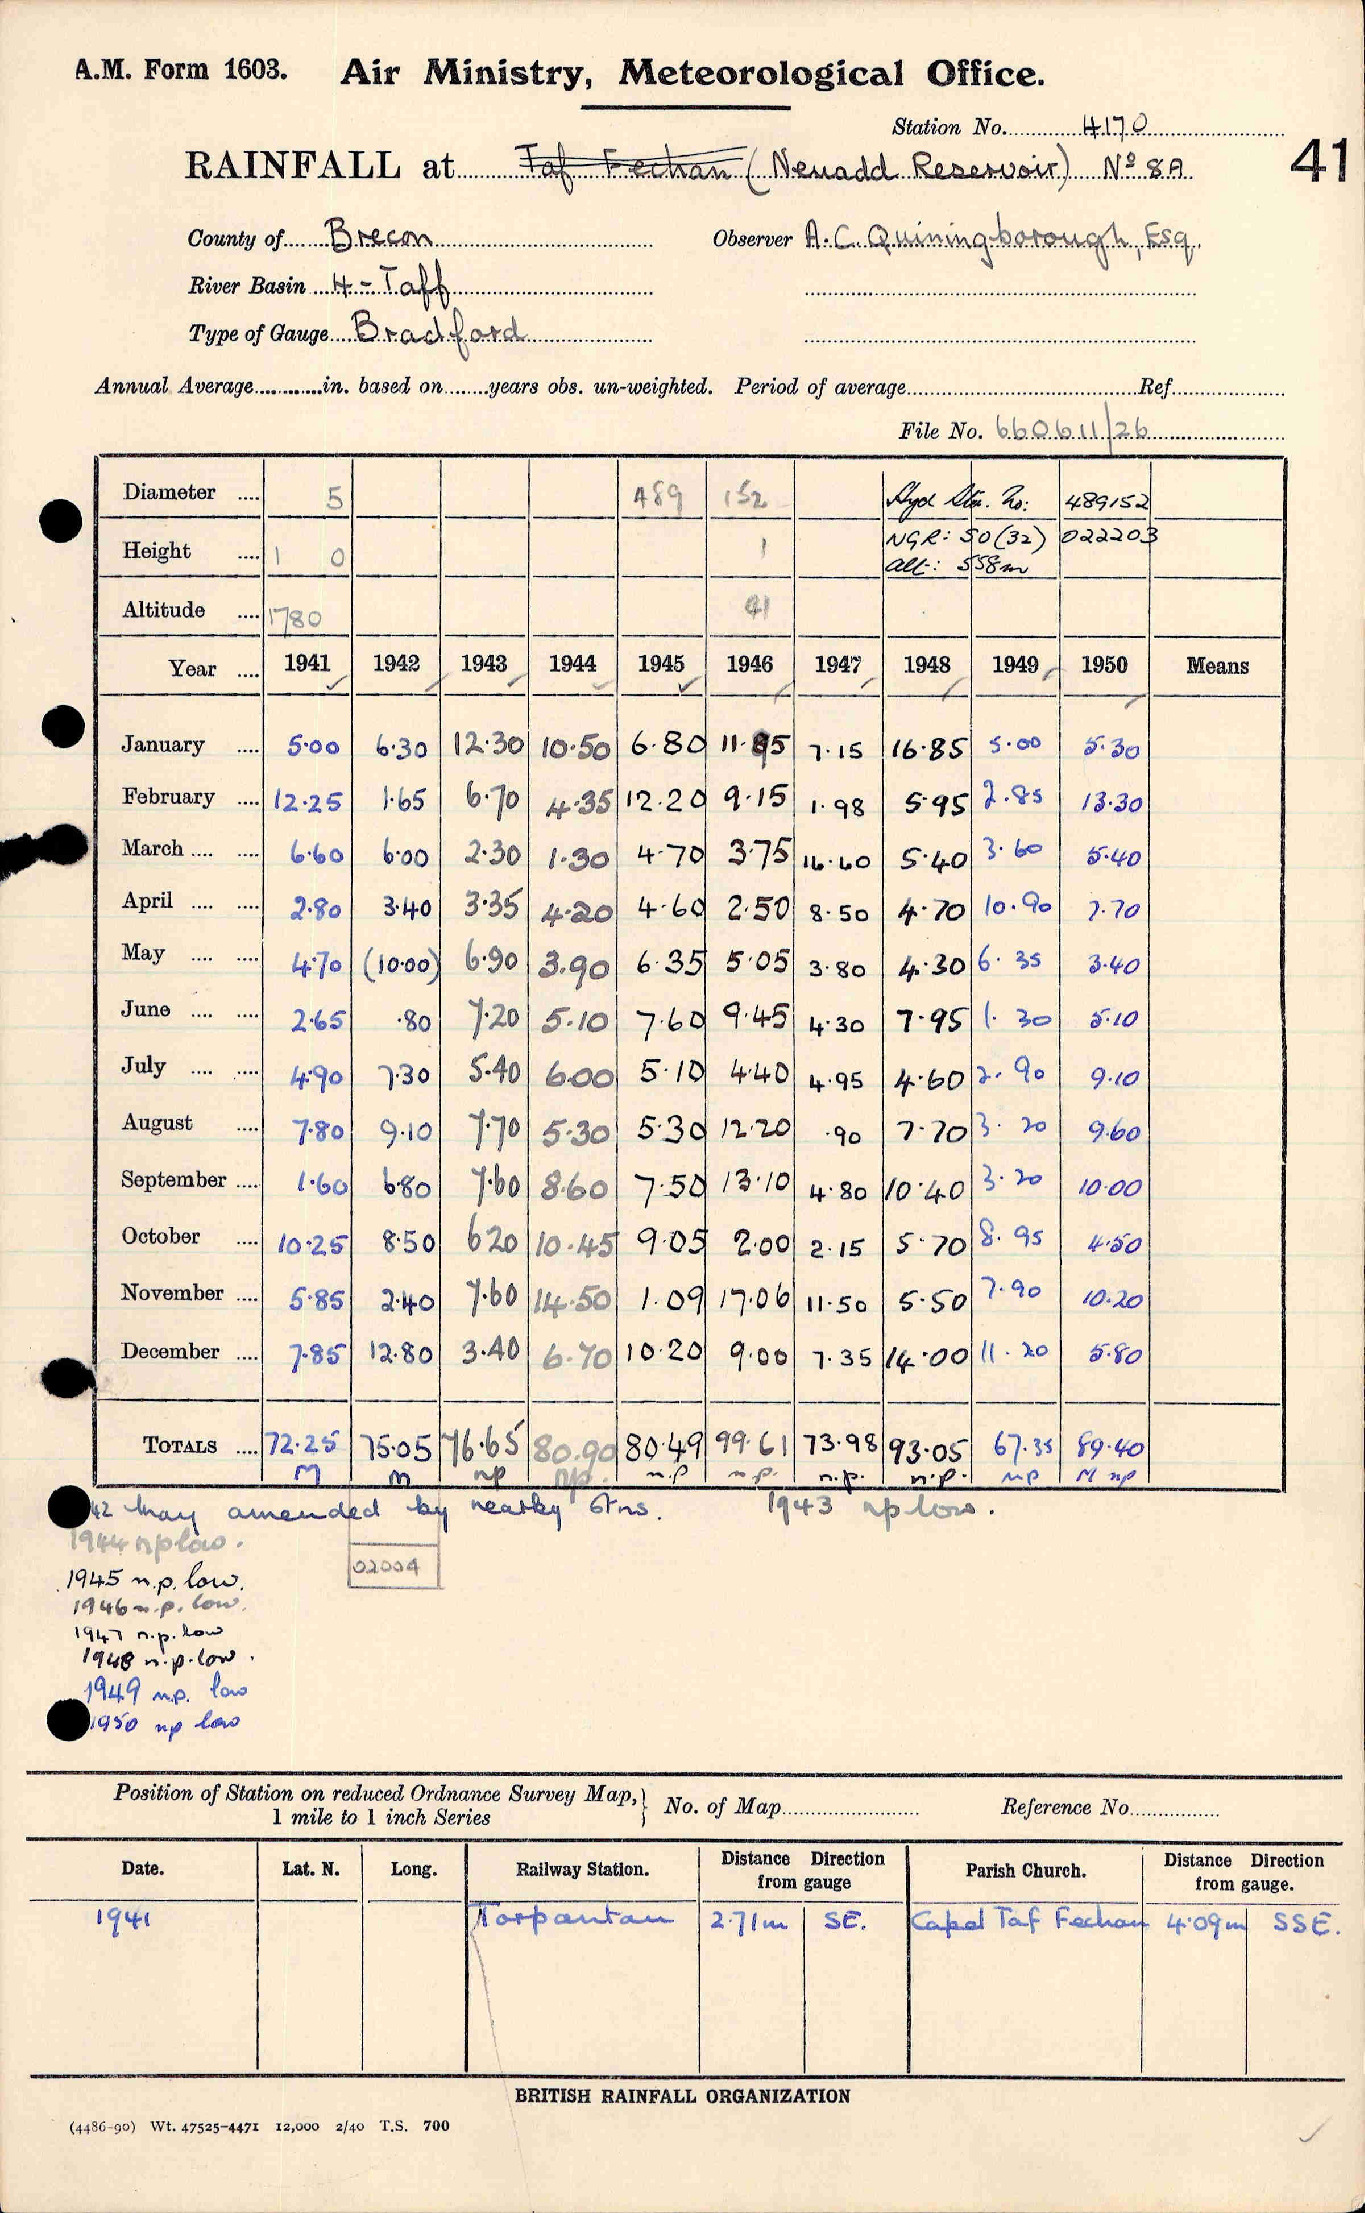 A.M. Form 1603. Air Ministry, Meteorological Office.
Station No. 4170
RAINFALL at Taf Fechan (Neuadd Reservoir) No 8A 41
County of Brecon Observer A.C. Quiningborough, Esq.
River Basin 4 - Taff
Type of Gauge Bradford
Annual Average in. based on years obs. un-weighted. Period of average Ref
File No. 660611/26
Diameter 5 489 152 Hyd Stn. No: 489152
Height 1 0 1 NGR: SO (32) 022203
alt: 558m
Altitude 1780 41
Year 1941 1942 1943 1944 1945 1946 1947 1948 1949 1950 Means
January 5.00 6.30 12.30 10.50 6.80 11.85 7.15 16.85 5.00 5.30
February 12.25 1.65 6.70 4.35 12.20 9.15 1.98 5.95 2.85 13.30
March 6.60 6.00 2.30 1.30 4.70 3.75 16.60 5.40 3.60 5.40
April 2.80 3.40 3.35 4.20 4.60 2.50 8.50 4.70 10.90 7.70
May 4.70 (10.00) 6.90 3.90 6.35 5.05 3.80 4.30 6.35 3.40
June 2.65 .80 7.20 5.10 7.60 9.45 4.30 7.95 1.30 5.10
July 4.90 7.30 5.40 6.00 5.10 4.40 4.95 4.60 2.90 9.10
August 7.80 9.10 7.70 5.30 5.30 12.20 .90 7.70 3.20 9.60
September 1.60 6.80 7.60 8.60 7.50 13.10 4.80 10.40 3.20 10.00
October 10.25 8.50 6.20 10.45 9.05 2.00 2.15 5.70 8.95 4.50
November 5.85 2.40 7.60 14.50 1.09 17.06 11.50 5.50 7.90 10.20
December 7.85 12.80 3.40 6.70 10.20 9.00 7.35 14.00 11.20 5.80
TOTALS 72.25 75.05 76.65 80.90 80.49 99.61 73.98 93.05 67.35 89.40
M M np np. n.p n.p. n.p. n.p. np M np
42 May amended by nearby stns. 1943 np low.
1944 np low.
02004
1945 n.p. low.
1946 n.p. low.
1947 n.p. low
1948 n.p. low.
1949 n.p. low
1950 np low
Position of Station on reduced Ordnance Survey Map, 1 mile to 1 inch Series } No. of Map Reference No.
Date. Lat. N. Long. Railway Station. Distance Direction from gauge Parish Church. Distance Direction from gauge.
1941 Torpantau 2.71m SE. Capel Taf Fechan 4.09m SSE.
BRITISH RAINFALL ORGANIZATION
(4486-90) Wt. 47525-4471 12,000 2/40 T.S. 700